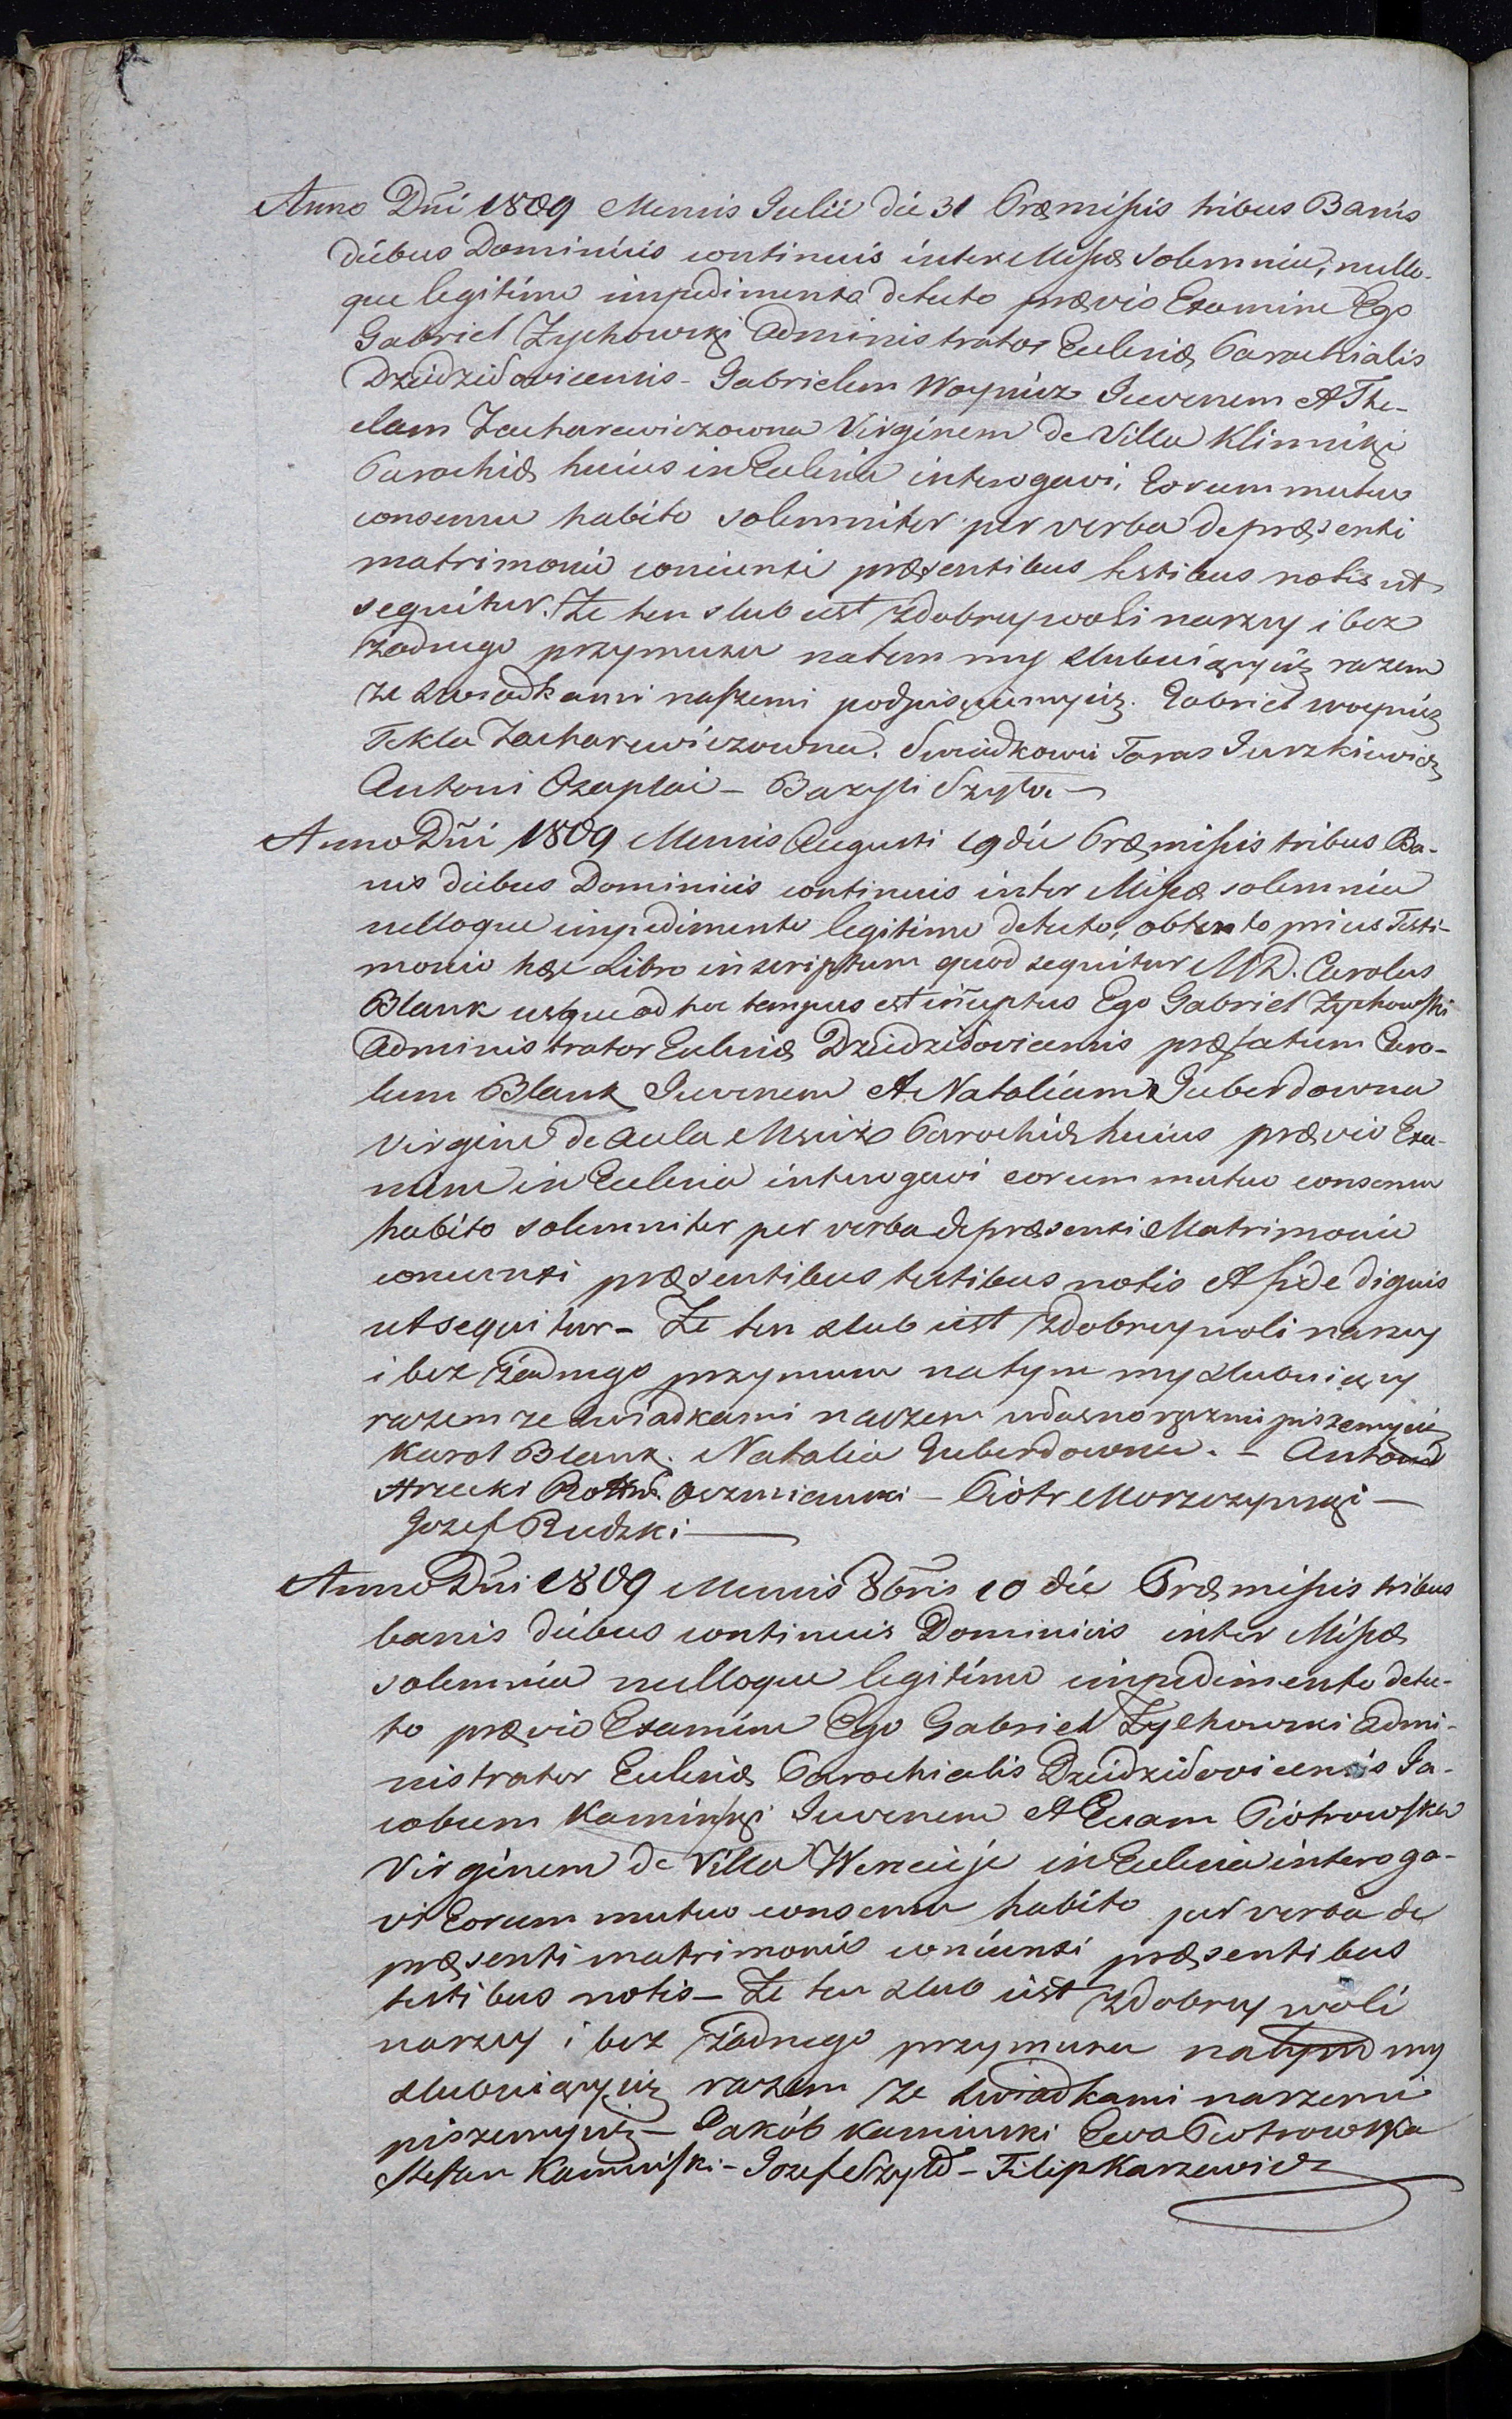 Anno Dñi 1809 Mensis Julii die 31 Præmissis tribus Banis
diebus Dominicis continuis inter Missæ Solemnia, nullo-
que legitimo impedimento detecto prævio Examine Ego
Gabriel Zychowski Administrator Ecclesiæ Parochialis
Dziedzilovicensis - Gabrielem Woynicz Juvenem Et The-
clam Zacharewiczowna Virginem de Villa Klinniki
Parochiæ huius in Ecclesia interogavi, Eorum mutuo
consensu habito solemniter per verba de præsenti
matrimonio coniunxi præsentibus testibus notis ut
sequitur. Że ten slub iest zdobrey woli naszey i bez
żadnego przymusu natem my slubuiący się razem
ze swiadkami naszemi podpisuiemysię. Gabriel Woynicz
Tekla Zacharewiczowna. Swiadkowie Taras Jurzkiewicz
Antoni Czaplai - Bazyli Szyło
Anno Dñi 1809 Mensis Augusti 19 die Præmissis tribus Ba-
nis diebus Dominicis continuis inter Missæ solemnia
nulloque impedimento legitimo detecto, obtento prius Testi-
monio hæc Libro inscriptum quod sequitur MD. Carolus
Blank usque ad hoc tempus est iñuptus Ego Gabriel Zychowski
Administrator Ecclesiæ Dziedzilovicensis præfatum Caro-
lum Blank Juvenem Et Nataliam Guberdowna
Virgine de Aula Mściż Parochiæ huius prævio Exa-
mine in Ecclesia interogavi eorum mutuo consensu
habito solemniter per verba de præsenti Matrimonio
coniunxi præsentibus testibus notis Et fide dignis
ut sequitur - Że ten slub iest zdobrey woli naszey
i bez żadnego przymusu natym my slubuiący
razem ze swiadkami naszemi własnoręcznie piszemysię
Karol Blank. Natalia Guberdowna. - Antoni
Arzecki Rottm: Oszmianski - Piotr Morzczynski -
Jozef Rudzki
Anno Dñi 1809 Mensis 8bris 10 die Præmissis tribus
banis diebus continuis Dominicis inter Missæ
solemnia nulloque legitimo impedimento detec-
to prævio Examine Ego Gabriel Zychowski Admi-
nistrator Ecclesiæ Parochialis Dziedzilovicensis Ja-
cobum Kaminski Juvenem Et Evam Piotrowska
Virginem de Villa in Ecclesia interoga-
vi Eorum mutuo consensu habito per verba de
præsenti matrimonio coniunxi præsentibus
testibus notis - Że ten slub iest zdobrey woli
naszey i bez żadnego przymusu natym my
slubuiący się razem ze swiadkami naszemi
piszemysię - Jakób Kaminski Ewa Piotrowska
Stefan Kaminski - Jozef Szyło - Filip Karzewicz